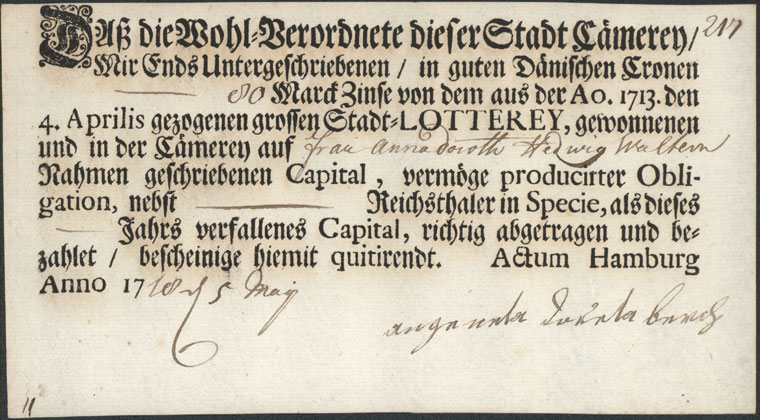 217
Daß die Wohl-Verordnete dieser Stadt Cämerey/
Mir Ends Untergeschriebenen / in guten Dänischen Cronen
80 Marck Zinse von dem aus der Ao. 1713. den
4. Aprilis gezogenen grossen Stadt-LOTTEREY, gewonnenen
und in der Cämerey auf frau Anna doroth Hedwig Waltern
Nahmen geschriebenen Capital, vermöge producirter Obli-
gation, nebst Reichsthaler in Specie, als dieses
Jahrs verfallenes Capital, richtig abgetragen und be-
zahlet / bescheinige hiemit quitirendt. Actum Hamburg
Anno 1718 5 May
angeneta berch
11